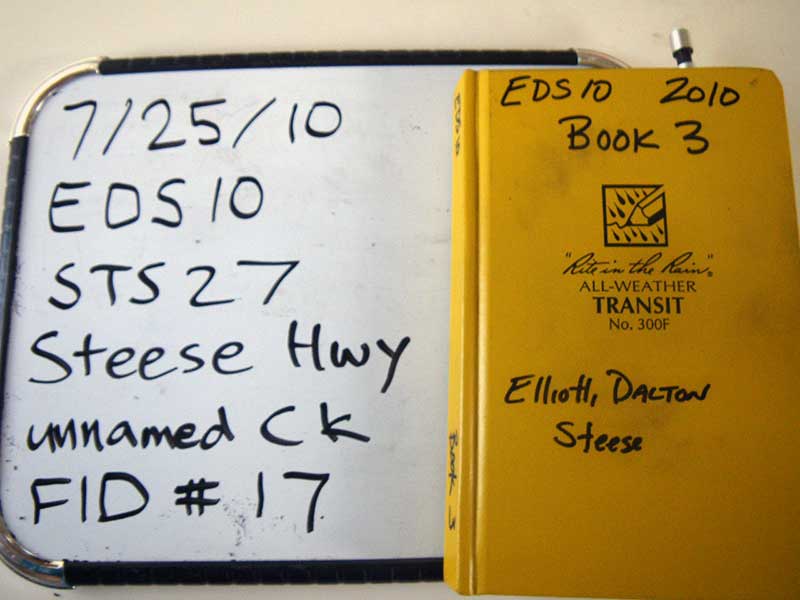 7/25/10
EDS10
STS27
Steese Hwy
unnamed Ck
FID # 17
EDS10 2010
Book 3
"Rite in the Rain"
ALL-WEATHER
TRANSIT
No. 300F
Elliott, DALTON
Steese
Book 3